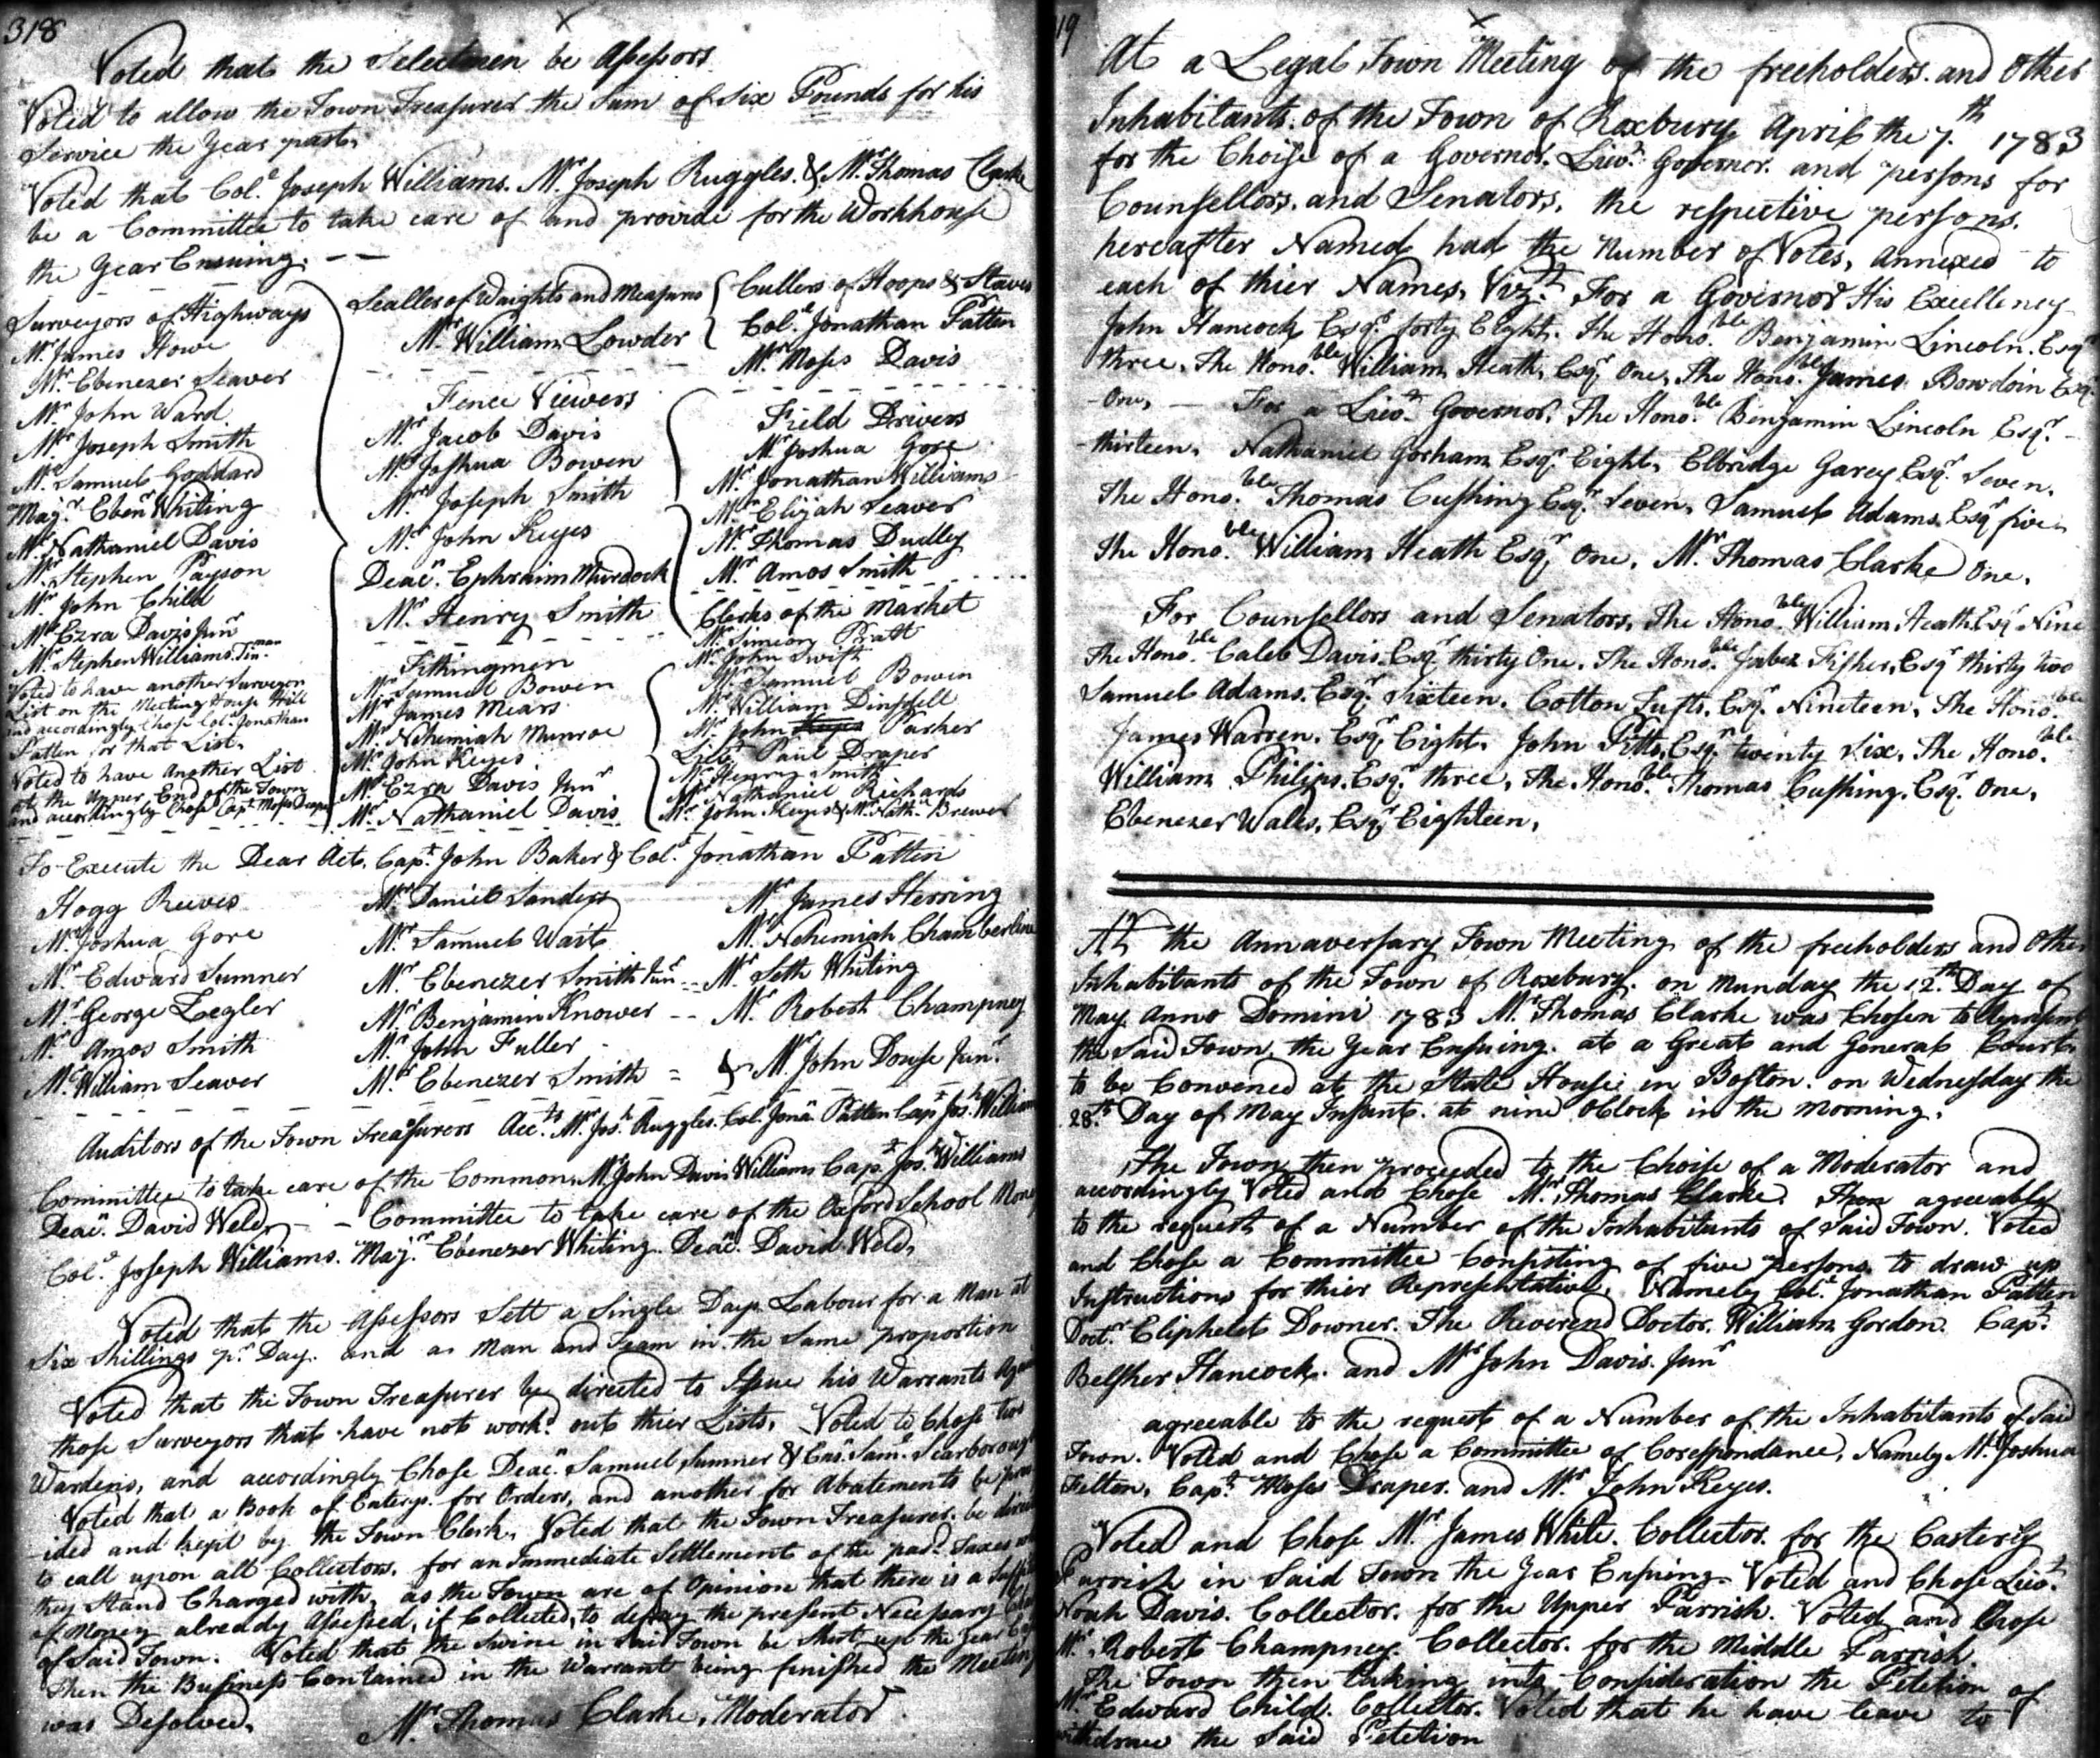 318
Voted that the Selectmen be Assessors.
Voted to allow the Town Treasurer the Sum of Six Pounds for his
Service the Year past.
Voted that Col. Joseph Williams. Mr. Joseph Ruggles. & Mr. Thomas Clarke
be a Committee to take care of and provide for the Workhouse
the Year Ensuing.
Surveyors of Highways
Mr. James Howe
Mr. Ebenezer Seaver
Mr. John Ward
Mr. Joseph Smith
Mr. Samuel Goddard
Majr. Ebenr. Whiting
Mr. Nathaniel Davis
Mr. Stephen Payson
Mr. John Child
Mr. Ezra Davis Junr
Mr. Stephen Williams.
Voted to have another Surveyor
List on the Meeting House Hill
and accordingly Chose Col. Jonathan
Patten for that List.
Voted to have Another List
at the Upper End of the Town
and accordingly Chose Capt. Moses Draper
Sealler of Waights and Measures
Mr. William Lowder
Fence Viewers
Mr. Jacob Davis
Mr. Joshua Bowen
Mr. Joseph Smith
Mr. John Keyes
Deacn. Ephraim Murdock
Mr. Henry Smith
Tithingmen
Mr. Samuel Bowen
Mr. James Mears
Mr. Nehemiah Munroe
Mr. John Keyes
Mr. Ezra Davis Junr
Mr. Nathaniel Davis
Cullers of Hoops & Staves
Col. Jonathan Patten
Mr. Moses Davis
Field Drivers
Mr. Joshua Gore
Mr. Jonathan Williams
Mr. Elijah Seaver
Mr. Thomas Dudley
Mr. Amos Smith
Clerks of the Market
Mr. Simeon Pratt
Mr. John Swift
Mr. Samuel Bowen
Mr. William Dinsdell
Mr. John Parker
Lieut. Paul Draper
Mr. Henry Smith
Mr. Nathaniel Richards
Mr. John Keyes & Mr. Nathn. Brewer
To Execute the Dear Act. Capt. John Baker & Col. Jonathan Patten
Hogg Reeves
Mr. Joshua Gore
Mr. Edward Sumner
Mr. George Zegler
Mr. Amos Smith
Mr. William Seaver
Mr. Daniel Sanders
Mr. Samuel Wait
Mr. Ebenezer Smith Junr
Mr. Benjamin Knower
Mr. John Fuller
Mr. Ebenezer Smith
Mr. James Herring
Mr. Nehemiah Chamberline
Mr. Seth Whiting
Mr. Robert Champney
& Mr. John Dowse Junr.
Auditors of the Town Treasurers Acc.ts Mr. Jos.h Ruggles. Col. Jona. Patten Capt. Jos.h Williams
Committee to take care of the Common, Mr. John Davis Williams Capt. Jos.h Williams
Deacn. David Weld, - - Committee to take care of the Oxford School Money
Col. Joseph Williams. Majr. Ebenezer Whiting. Deacn. David Weld,
Voted that the Assessors Sett a Single Days Labour for a Man at
Six Shillings pr. Day. and a Man and Team in the Same proportion
Voted that the Town Treasurer be directed to Issue his Warrants
those Surveyors that have not workd. out thier Lists. Voted to Chose two
Wardens, and accordingly Chose Deacn. Samuel Sumner & Ens. Sam. Scarborough
Voted that a Book of Enterys. for Orders, and another for Abatements be prov
ided and kept by the Town Clerk. Voted that the Town Treasurer. be direc
to call upon all Collectors, for an Immediate Settlement of the Taxes
they Stand Charged with, as the Town are of Opinion that there is a
of Money already Assessed, if Collected, to defray the present Necessary
of Said Town. Voted that the Swine in Said Town be Shut up the Year
Then the Business Contained in the Warrant being finished the Meeting
was Desolved,
Mr. Thomas Clarke, Moderator
19
At a Legal Town Meeting of the freeholders. and Other
Inhabitants. of the Town of Roxbury April the 7.th 1783
for the Choise of a Governor. Lieut. Governor. and persons for
Counsellors. and Senators, the respective persons,
hereafter Named, had the Number of Votes, annexed to
each of thier Names, Vizt. For a Governor His Excellency
John Hancock Esqr. forty Eight. The Hono.ble Benjamin Lincoln. Esqr
three, The Hono.ble William Heath, Esqr One, The Hono.ble James Bowdoin Esqr.
One, - For a Lieut. Governor, The Hono.ble Benjamin Lincoln Esqr.
thirteen. Nathaniel Gorham Esqr. Eight, Elbridge Garey Esqr. Seven.
The Hono.ble Thomas Cushing Esqr. Seven, Samuel Adams, Esqr five.
The Hono.ble William Heath Esqr. One, Mr. Thomas Clarke One,
For Counsellors and Senators, The Hono.ble William Heath Esqr Nine
The Hono.ble Caleb Davis. Esqr thirty One. The Hono.ble Jabez Fisher, Esqr thirty two
Samuel Adams. Esqr Sixteen. Cotton Tufts. Esqr. Nineteen, The Hono.ble
James Warren. Esqr Eight, John Pitts, Esqr twenty Six, The Hono.ble
William Philips. Esqr. three, The Hono.ble Thomas Cushing, Esqr. One,
Ebenezer Wales, Esqr Eighteen,
At the Annaversary Town Meeting of the freeholders and Other
Inhabitants of the Town of Roxbury. on Munday the 12.th Day of
May Anno Domini 1783 Mr. Thomas Clarke was Chosen to Represent
the Said Town, the Year Ensuing. at a Great and General Court
to be Convened at the State House in Boston. on Wednesday the
28.th Day of May Instant. at nine OClock in the morning,
The Town then proceeded to the Choise of a Moderator and
accordingly Voted and Chose Mr. Thomas Clarke. Then agreeably
to the request of a Number of the Inhabitants of Said Town. Voted
and Chose a Committee Consisting of five persons to draw up
Instructions for thier Representative. Namely Col. Jonathan Patten
Doctr. Eliphelet Downer. The Reverend Doctor. William Gordon. Capt.
Belsher Hancock. and Mr. John Davis. Junr
agreeable to the request of a Number of the Inhabitants of Said
Town. Voted and Chose a Committee of Corespondance, Namely Mr. Joshua
Felton, Capt. Moses Draper. and Mr. John Keyes.
Voted and Chose Mr. James White. Collector. for the Easterly
Parrish in Said Town the Year Ensuing. Voted and Chose Lieut.
Noah Davis. Collector. for the Upper Parrish. Voted and Chose
Mr. Robert Champney. Collector. for the Middle Parrish.
The Town then taking into Consideration the Petition of
Mr. Edward Child. Collector. Voted that he have leave to
withdraw the Said Petetion